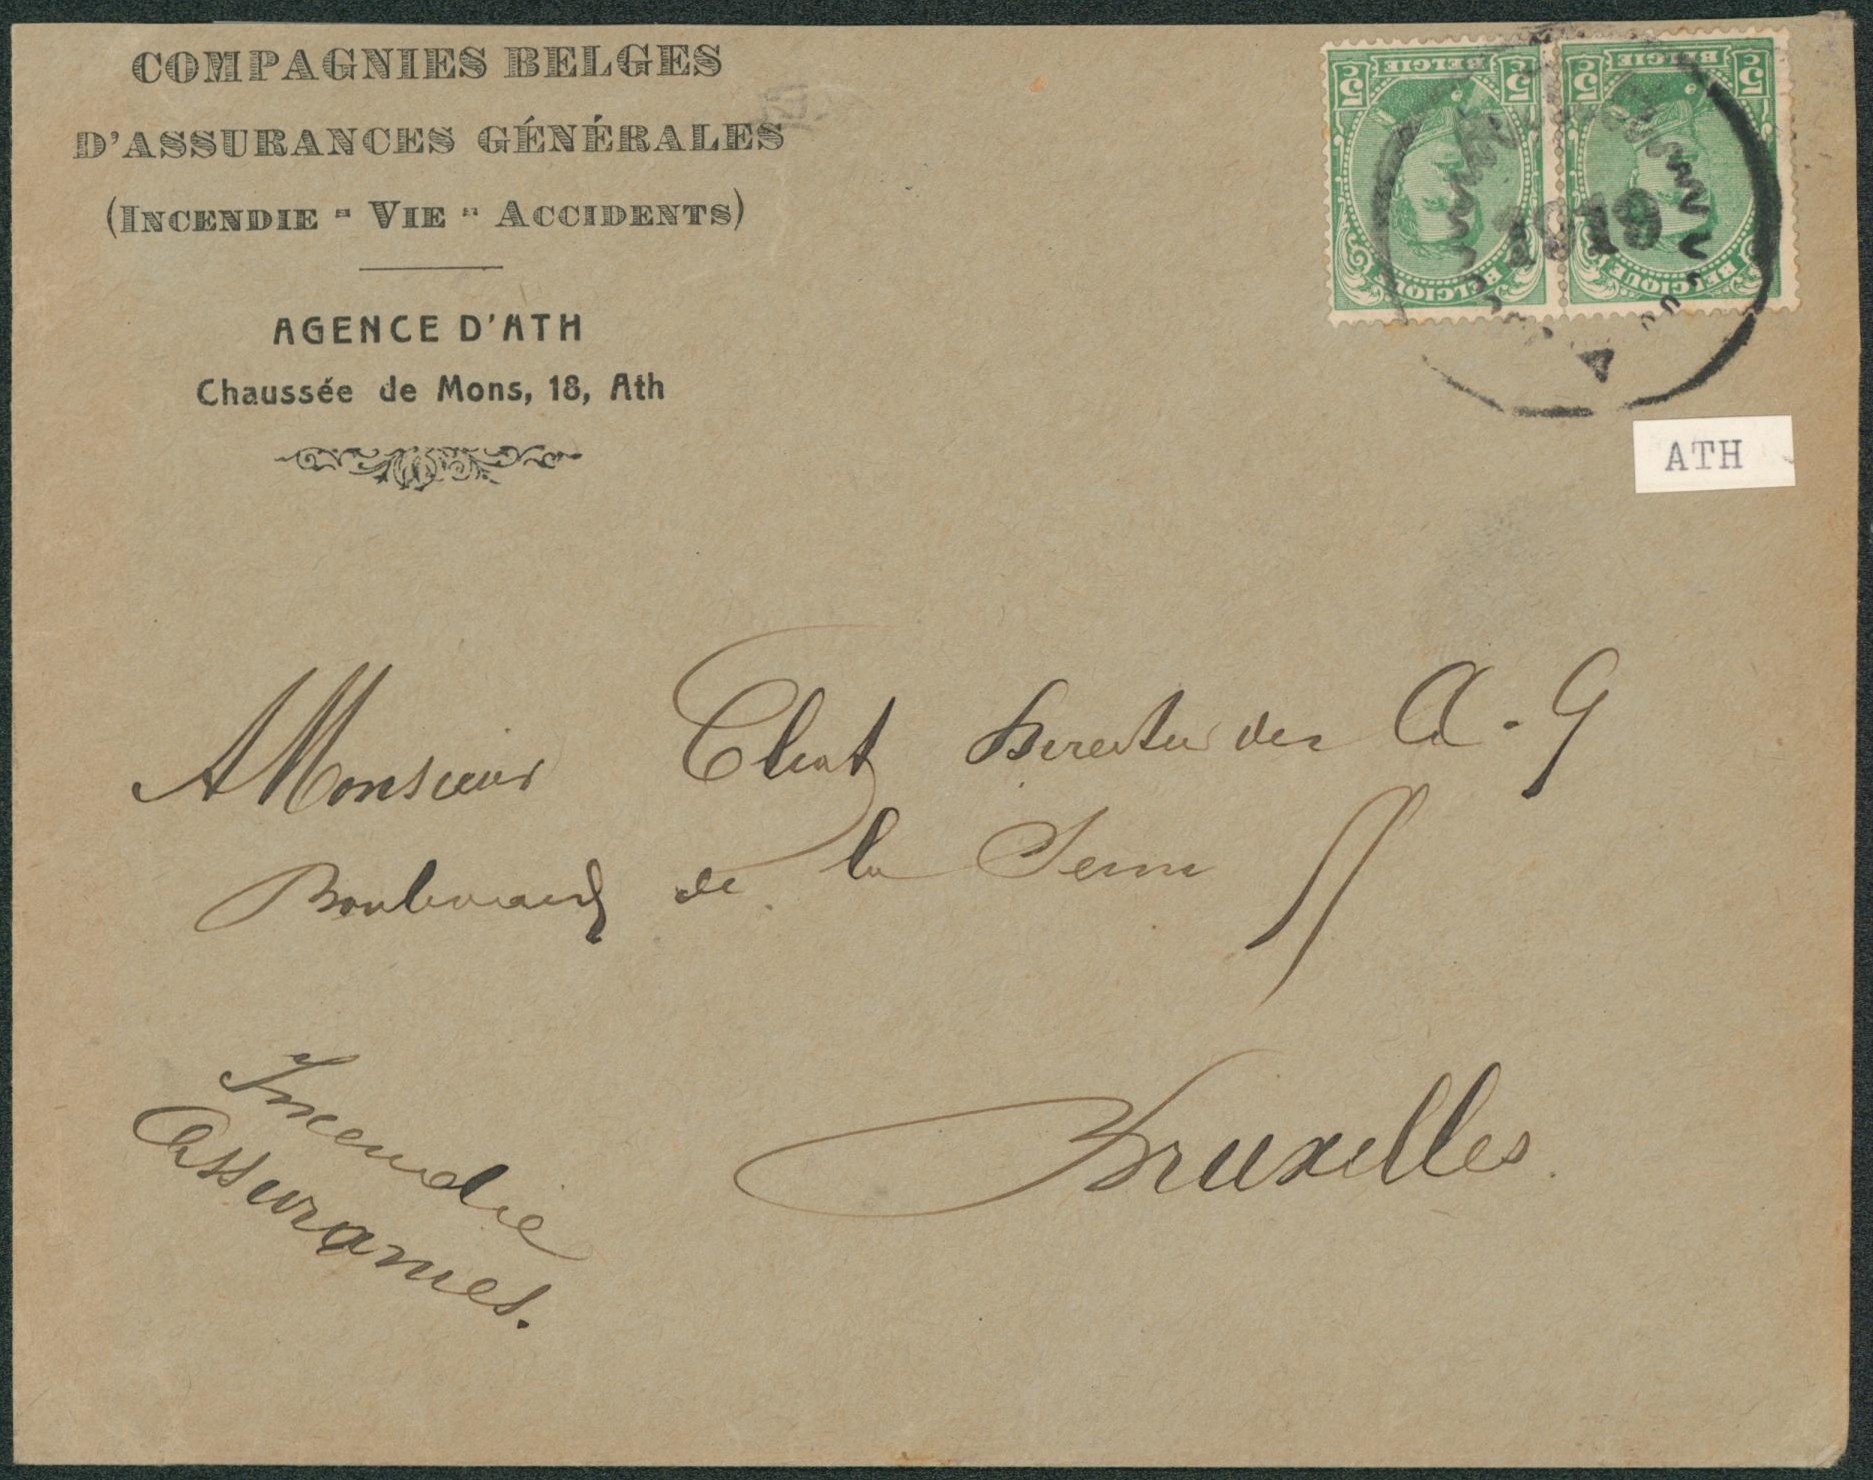 COMPAGNIES BELGES
D'ASSURANCES GÉNÉRALES
(INCENDIE - VIE - ACCIDENTS)
AGENCE D'ATH
Chaussée de Mons, 18, Ath
5c BELGIË 5c
BELGIQUE
5c BELGIË 5c
BELGIQUE
1919
A
ATH
A Monsieur Directeur des A-G
Boulevard de la Senne
Bruxelles
Incendie
Assurances.